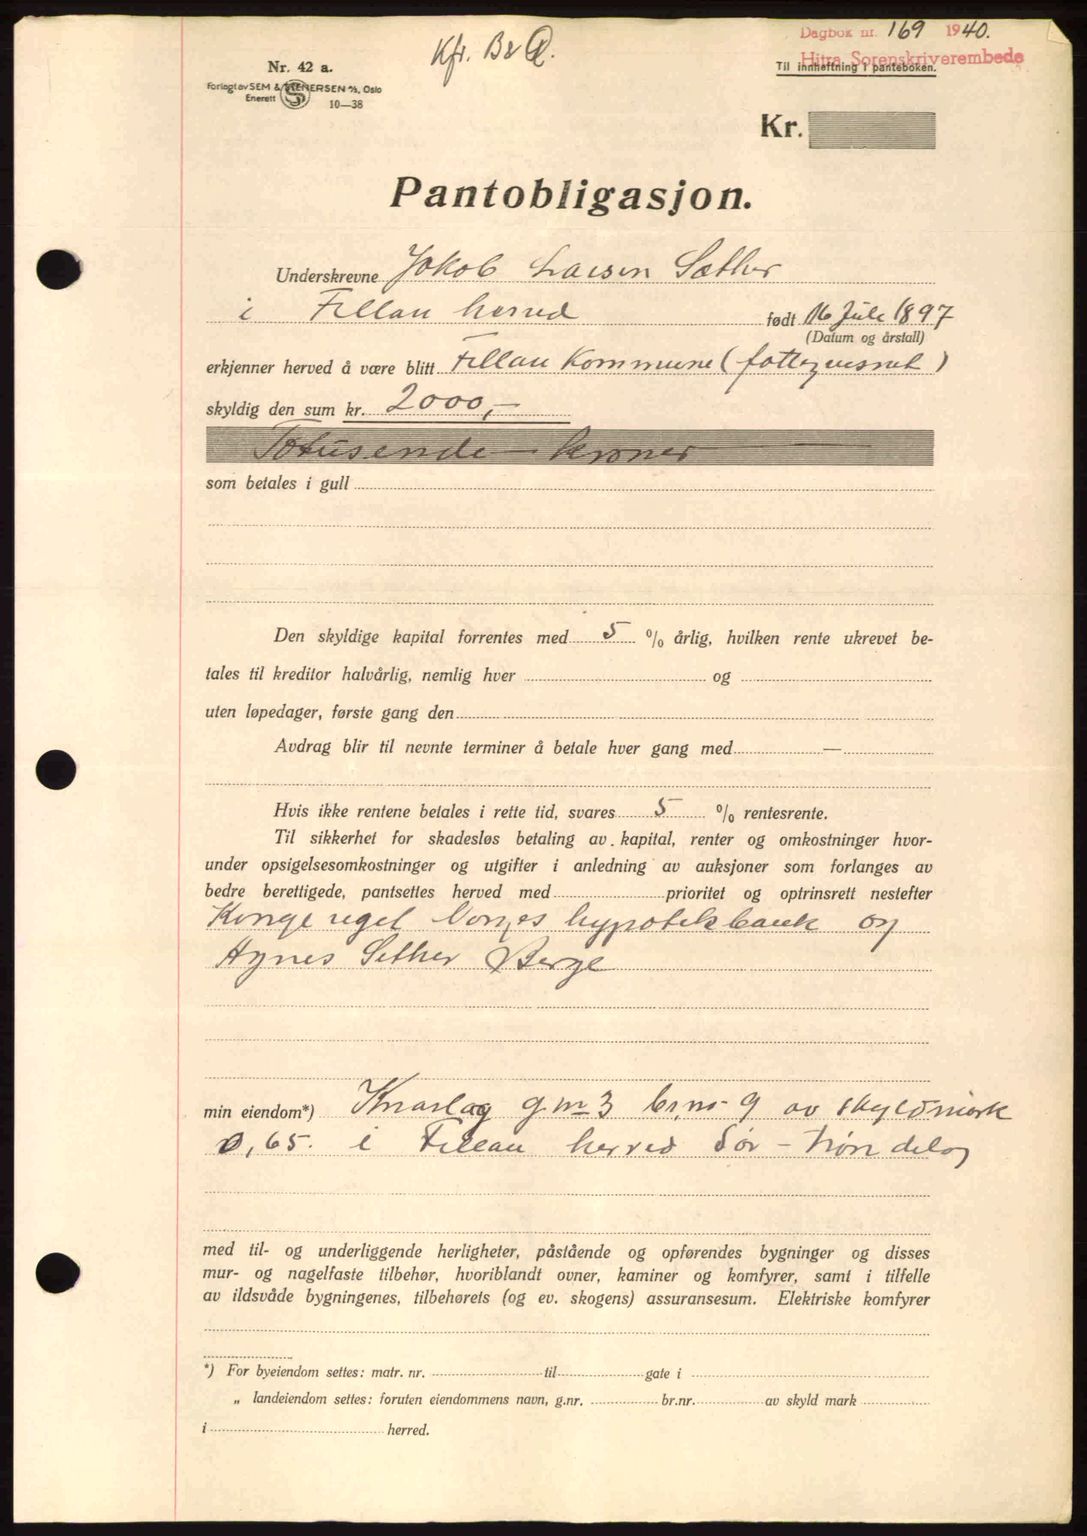 Dagbok nr. 169 1940.
Hitra Sorenskriverembede
Til innheftning i panteboken.
Nr. 42 a.
Forlagt av SEM & STENERSEN A/S, Oslo
Enerett 10—38
Kfr. B2
Kr.
Pantobligasjon.
Underskrevne Jakob Larsen Sæther
i Fillan herred født 16 Juli 1897
(Datum og årstall)
erkjenner herved å være blitt Fillan Kommune (fattigvesnet)
skyldig den sum kr. 2000,-
Totusende kroner
som betales i gull
Den skyldige kapital forrentes med 5 % årlig, hvilken rente ukrevet be-
tales til kreditor halvårlig, nemlig hver og
uten løpedager, første gang den
Avdrag blir til nevnte terminer å betale hver gang med —
Hvis ikke rentene betales i rette tid, svares 5 % rentesrente.
Til sikkerhet for skadesløs betaling av kapital, renter og omkostninger hvor-
under opsigelsesomkostninger og utgifter i anledning av auksjoner som forlanges av
bedre berettigede, pantsettes herved med prioritet og optrinsrett nestefter
Konge riget Norges hypotekbank og
Agnes Sether Berge
min eiendom*) Knarlag g.nr 3 br,nr 9 av skyldmark
0,65. i Fillan herred Sør-Trøndelag
med til- og underliggende herligheter, påstående og opførendes bygninger og disses
mur- og nagelfaste tilbehør, hvoriblandt ovner, kaminer og komfyrer, samt i tilfelle
av ildsvåde bygningenes, tilbehørets (og ev. skogens) assuransesum. Elektriske komfyrer
*) For byeiendom settes: matr. nr. til gate i
„ landeiendom settes: foruten eiendommens navn, g.nr. br.nr. av skyld mark
i herred.